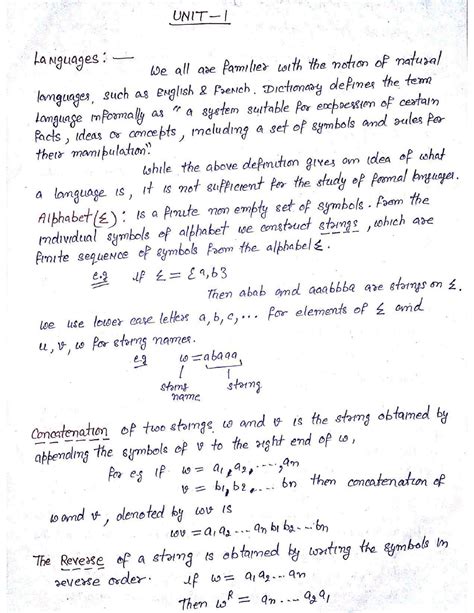 UNIT-1
Languages: —
We all are familier with the notion of natural
languages, such as English & French. Dictionary defines the term
language informally as "a system suitable for expression of certain
facts, ideas or concepts, including a set of symbols and rules for
their manipulation".
While the above definition gives an idea of what
a language is, it is not sufficient for the study of formal languages.
Alphabet (Σ): is a finite non empty set of symbols. From the
individual symbols of alphabet we construct strings, which are
finite sequence of symbols from the alphabel Σ.
e.g if Σ = {a,b}
Then abab and aaabbba are strings on Σ.
we use lower case letters a, b, c, ... for elements of Σ and
u, v, w for string names.
eg w = abaaa,
string string
name
Concatenation of two strings w and v is the string obtained by
appending the symbols of v to the right end of w,
for eg if w = a₁, a₂, ...., an
v = b₁, b₂ .... bn then concatenation of
w and v, denoted by wv is
wv = a₁ a₂ ... an b₁ b₂ ... bn
The Reverse of a string is obtained by writing the symbols in
reverse order. if w = a₁ a₂ ... an
Then wᴿ = an .... a₂ a₁